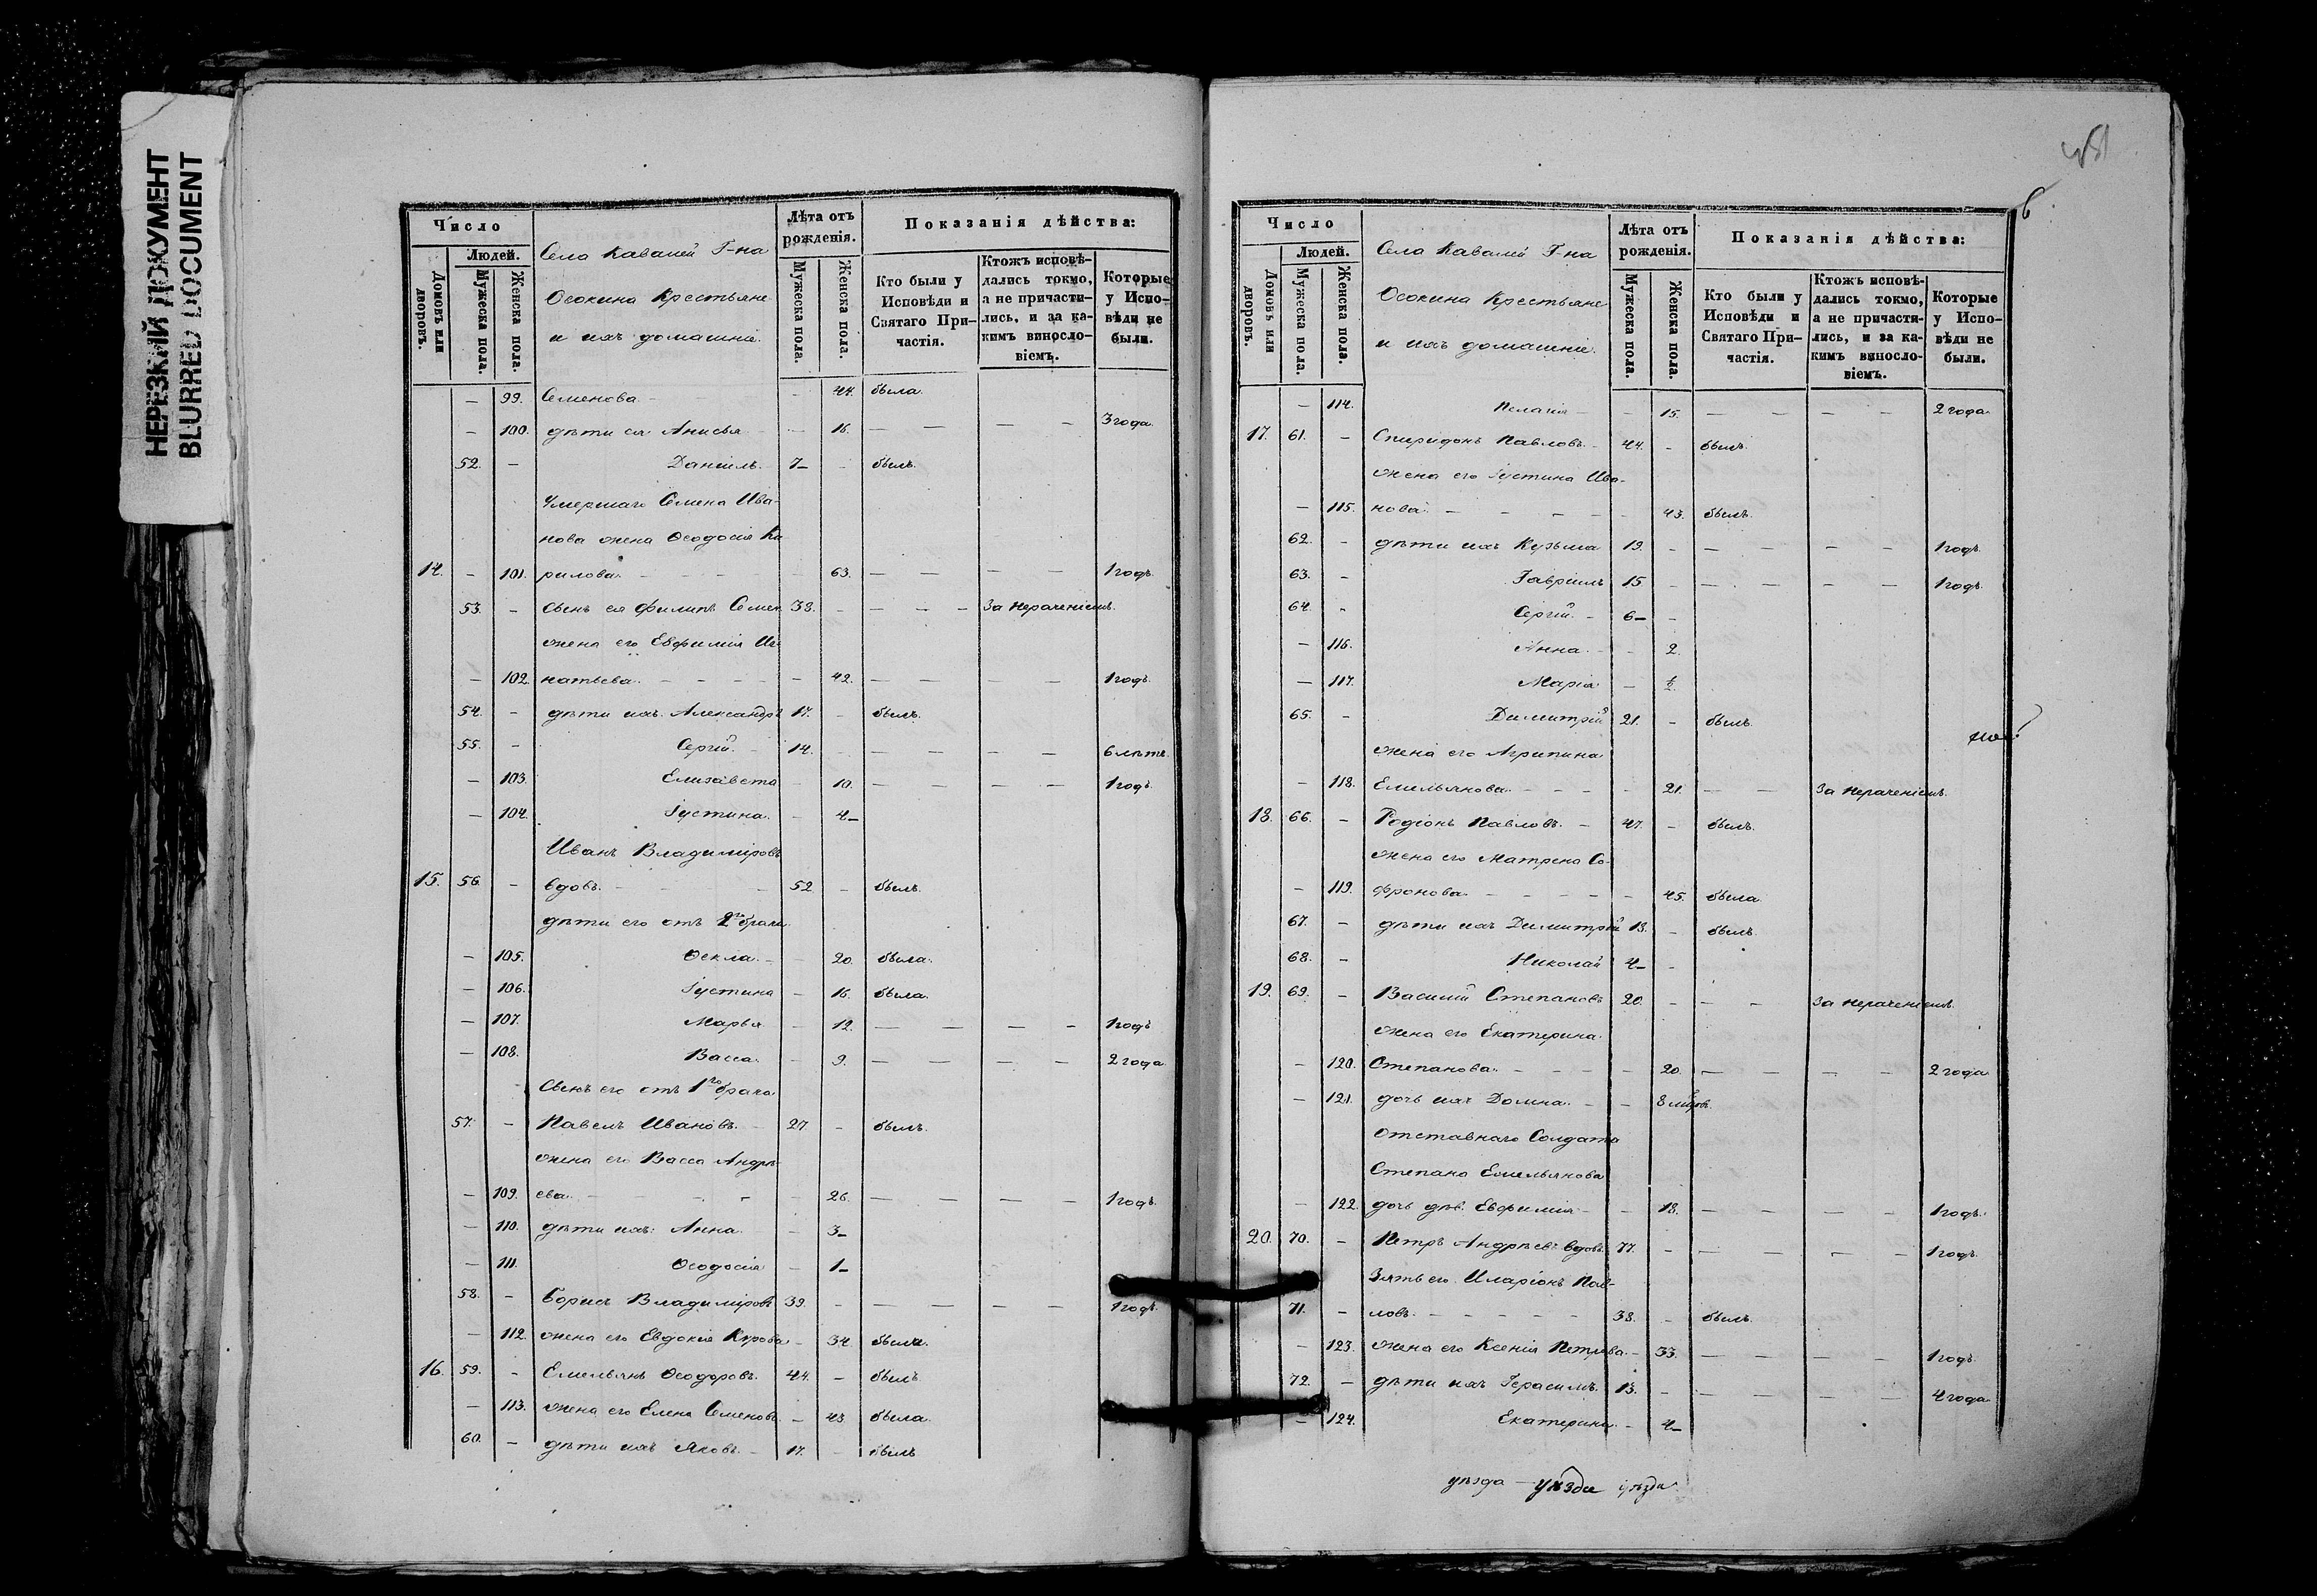 НЕРЕЗКИЙ ДОКУМЕНТ
BLURRED DOCUMENT
Число
Людей.
Домовъ или дворовъ.
Мужеска пола.
Женска пола.
Села Кавалей Г-на
Осокина Крестьяне
и ихъ домашніе.
Лѣта отъ рожденія.
Мужеска пола.
Женска пола.
Показанія дѣйства:
Кто были у Исповѣди и Святаго При-частія.
Ктожъ исповѣ-дались токмо, а не причасти-лись, и за ка-кимъ виносло-віемъ.
Которые у Испо-вѣди не были.
— 99. Семенова — 44. была.
— 100. дѣти ея Анисья — 16. — — — — 3 года.
52. — Даніилъ. 7 — былъ.
Умершаго Семена Ива-
нова жена Ѳеодосія Ки
14. — 101. рилова. — 63. — — — — 1 годъ
53. — Сынъ ея Филипъ Семен 38. — — — — за нераченіемъ.
жена его Евфимія Иг-
— 102. натьева. — 42. — — — — 1 годъ
54. — дѣти ихъ. Александръ 17. — былъ.
55. — Сергій. 14. — — — — 6 лѣтъ.
— 103. Елизавета — 10. — — — — 1 годъ
— 104. Іустина. — 4 —
Иванъ Владиміровъ
15. 56. — вдовъ. — 52 — былъ.
дѣти его отъ 2го брака.
— 105. Ѳекла. — 20. была.
— 106. Іустина — 16. была.
— 107. Марья — 12. — — — — 1 годъ
— 108. Васса. — 9. — — — — 2 года
Сынъ его отъ 1го брака
57. — Павелъ Ивановъ. 27 — былъ.
жена его Васса Андрѣ-
— 109. ева. — 26. — — — — 1 годъ.
— 110. дѣти ихъ: Анна — 3 —
— 111. Ѳеодосія — 1 —
58. — Борисъ Владиміровъ 39. — — — — — 1 годъ.
— 112. жена его Евдокія — 34. была.
16. 59. — Емельянъ Ѳеодоровъ. 44. — былъ.
— 113. жена его Елена Семенов. — 43 была.
60. — дѣти ихъ Яковъ. 17. — былъ
6
Число
Людей.
Домовъ или дворовъ.
Мужеска пола.
Женска пола.
Села Кавалей Г-на
Осокина Крестьяне
и ихъ домашніе.
Лѣта отъ рожденія.
Мужеска пола.
Женска пола.
Показанія дѣйства:
Кто были у Исповѣди и Святаго При-частія.
Ктожъ исповѣ-дались токмо, а не причасти-лись, и за ка-кимъ виносло-віемъ.
Которые у Испо-вѣди не были.
— 114. Пелагія — 15. — — — — 2 года
17. 61. — Спиридонъ Павловъ. 44. — былъ.
жена его Іустина Ива-
— 115. нова — 43. былъ.
62. — дѣти ихъ Кузьма 19. — — — — — 1 годъ.
63. — Гавріилъ 15 — — — — — 1 годъ.
64. — Сергій. 6 —
— 116. Анна. — 2.
— 117. Марія — ½
65. — Димитрій 21. — былъ.
жена его Агрипина
— 118. Емельянова. — 21. — — за нераченіемъ.
18. 66. — Родіонъ Павловъ. 47. — былъ.
жена его Матрена Со-
— 119. фронова. — 45. была
67. — дѣти ихъ Димитрій 13. — былъ.
68. — Николай 4 —
19. 69. — Василій Степановъ 20. — — — за нераченіемъ.
жена его Екатерина
— 120. Степанова. — 20. — — — — 2 года
— 121. дочь ихъ Домна. — 8 мѣ
Отставнаго Солдата
Степана Емельянова
— 122. дочь дѣв. Евфимія — 18. — — — — 1 годъ.
20. 70. — Петръ Андрѣевъ вдовъ. 77. — — — — — 1 годъ
Зять его Иларіонъ Пав-
71. — ловъ. — 38. — былъ.
— 123. жена его Ксенія Петрова. — 33. — — — — 1 годъ
72. — дѣти ихъ Герасимъ. 13. — — — — — 4 года
— 124. Екатерина. — 4 —
уѣзда — уѣзда уѣзда